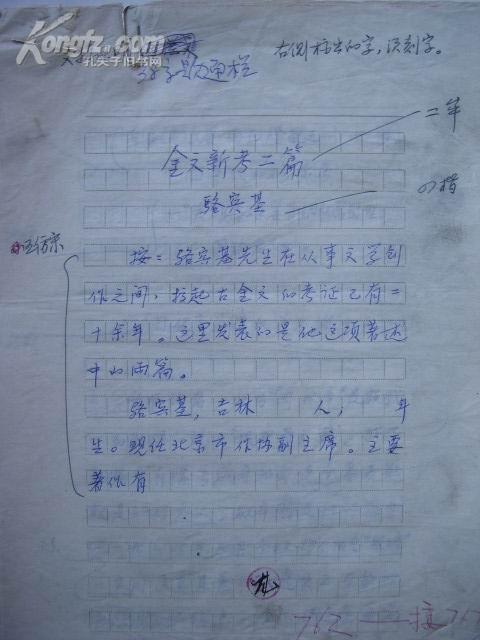 Kongfz.com
孔夫子旧书网
右侧标出的字,须刻字。
为通栏
二宋
金文新考二篇
骆宾基
四楷
五仿宋
按:骆宾基先生在从事文学创
作之间,拾起古金文的考证已有二
十余年。这里发表的是他这项著述
中的两篇。
骆宾基,吉林 人, 年
生。现任北京市作协副主席。主要
著作有
762 — 接